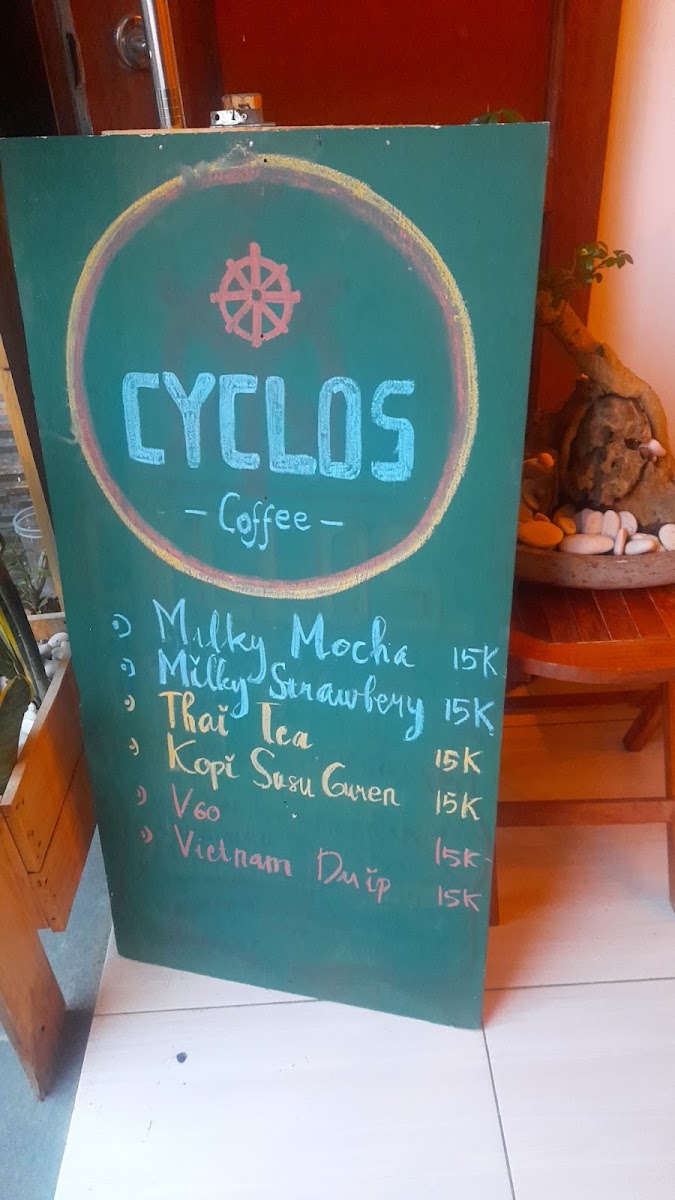 CYCLOS
- Coffee -
Milky Mocha 15K
Milky Strawbery 15K
Thai Tea 15K
Kopi Susu Guren 15K
V60 15K
Vietnam Drip 15K